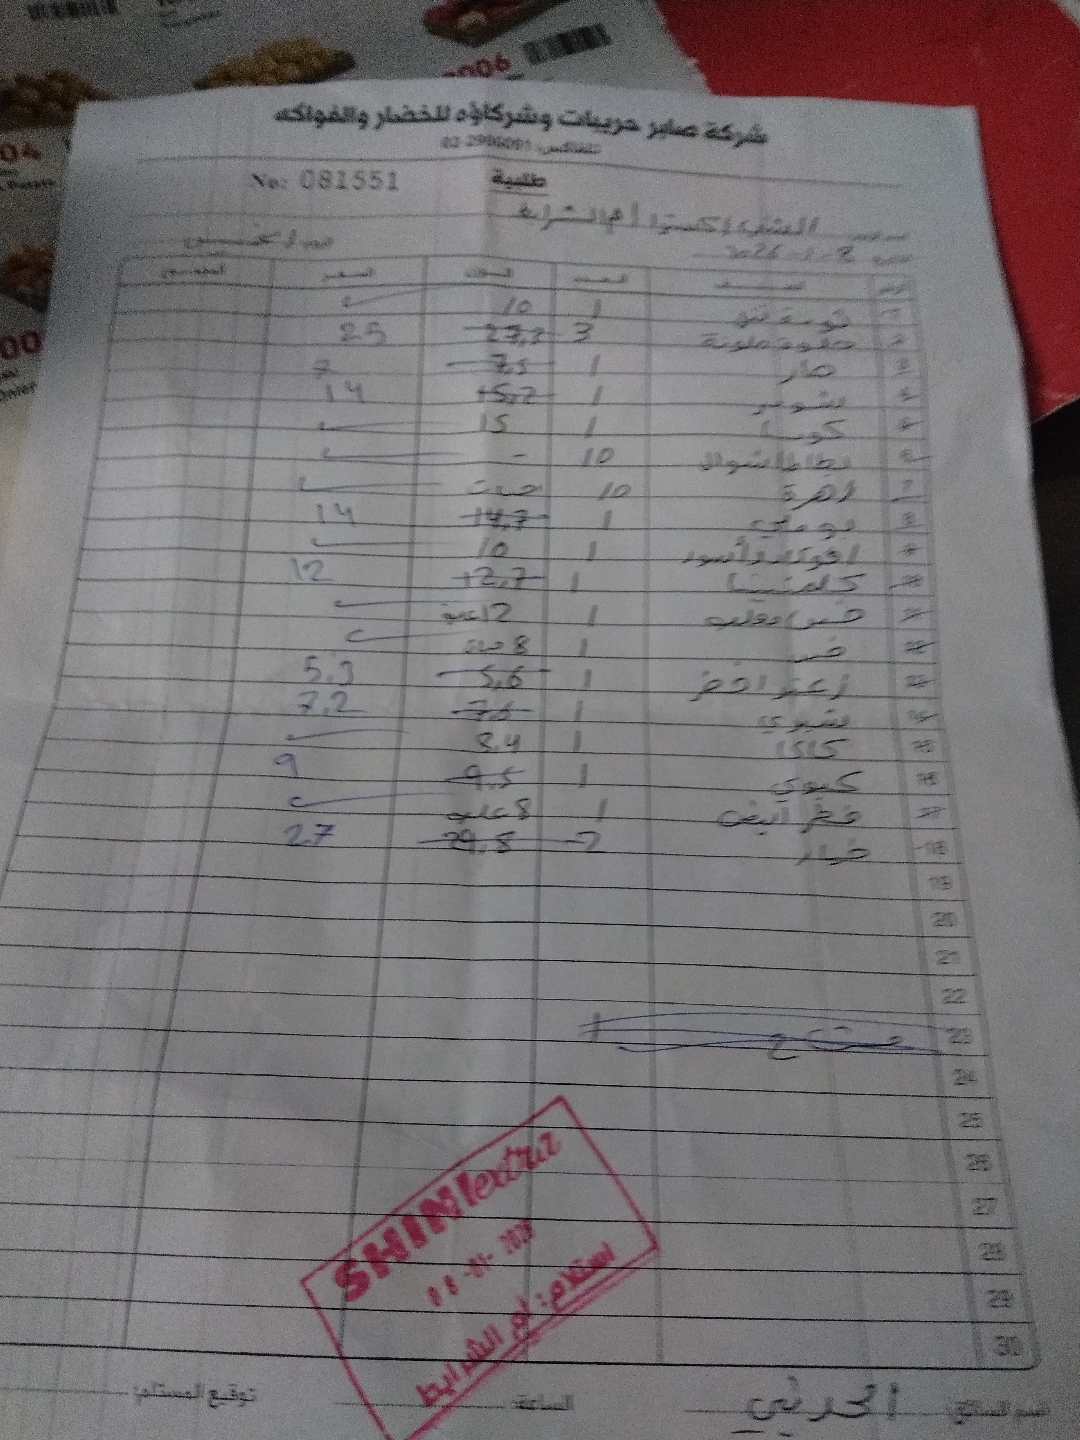 شركة صابر حريبات وشركاؤه للخضار والفواكه
تلفاكس: 02-2996091
طلبية
No: 081551
الشني إكسترا / أم الشرايط
2026-1-8
الصنف العدد الوزن السعر المجموع
1 ثومة 1 10
2 حلوة ملونة 3 27,3 25
3 حار 1 7,5 7
4 1 15,2 14
5 كوسا 1 15
6 بطاطا شوال 10 -
7 زهرة 10 حبت
8 بوملي 1 14,7 14
9 افوكادو أسود 1 10
10 كلمنتينا 1 12,7 12
11 1 12 علبة
12 خس 1 8 حبة
13 زعتر اخضر 1 5,6 5.3
14 1 7,6 7.2
15 كاكا 1 3.4
16 كيوي 1 9,5 9
17 فطر أبيض 1 8 علب
18 خيار 2 29,5 27
19
20
21
22
23
24
25
26
27
28
29
30
SHINI extra
08-01-2026
استلام: ام الشرايط
اسم السائق: الحربي الساعة: توقيع المستلم: